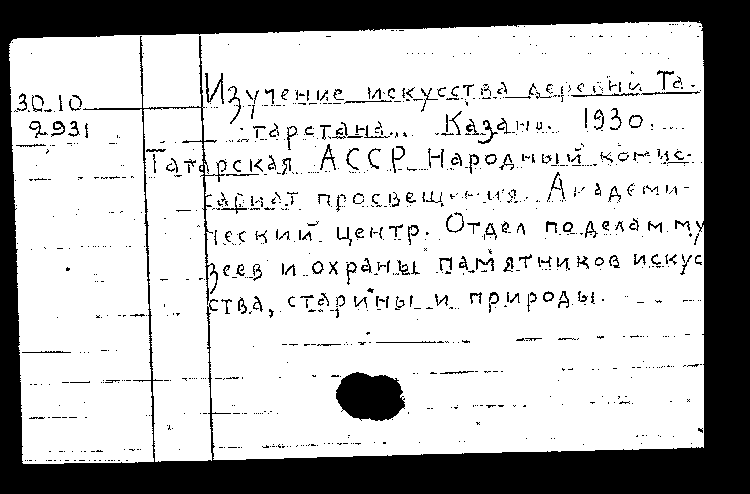 Изучение искусства деревни Та-
30.10
тарстана.. Казань. 1930.
2931
Татарская АССР Народный комис-
сариат просвещения. Академи-
ческий центр. Отдел по делам му
зеев и охраны памятников искус
ства, старины и природы.